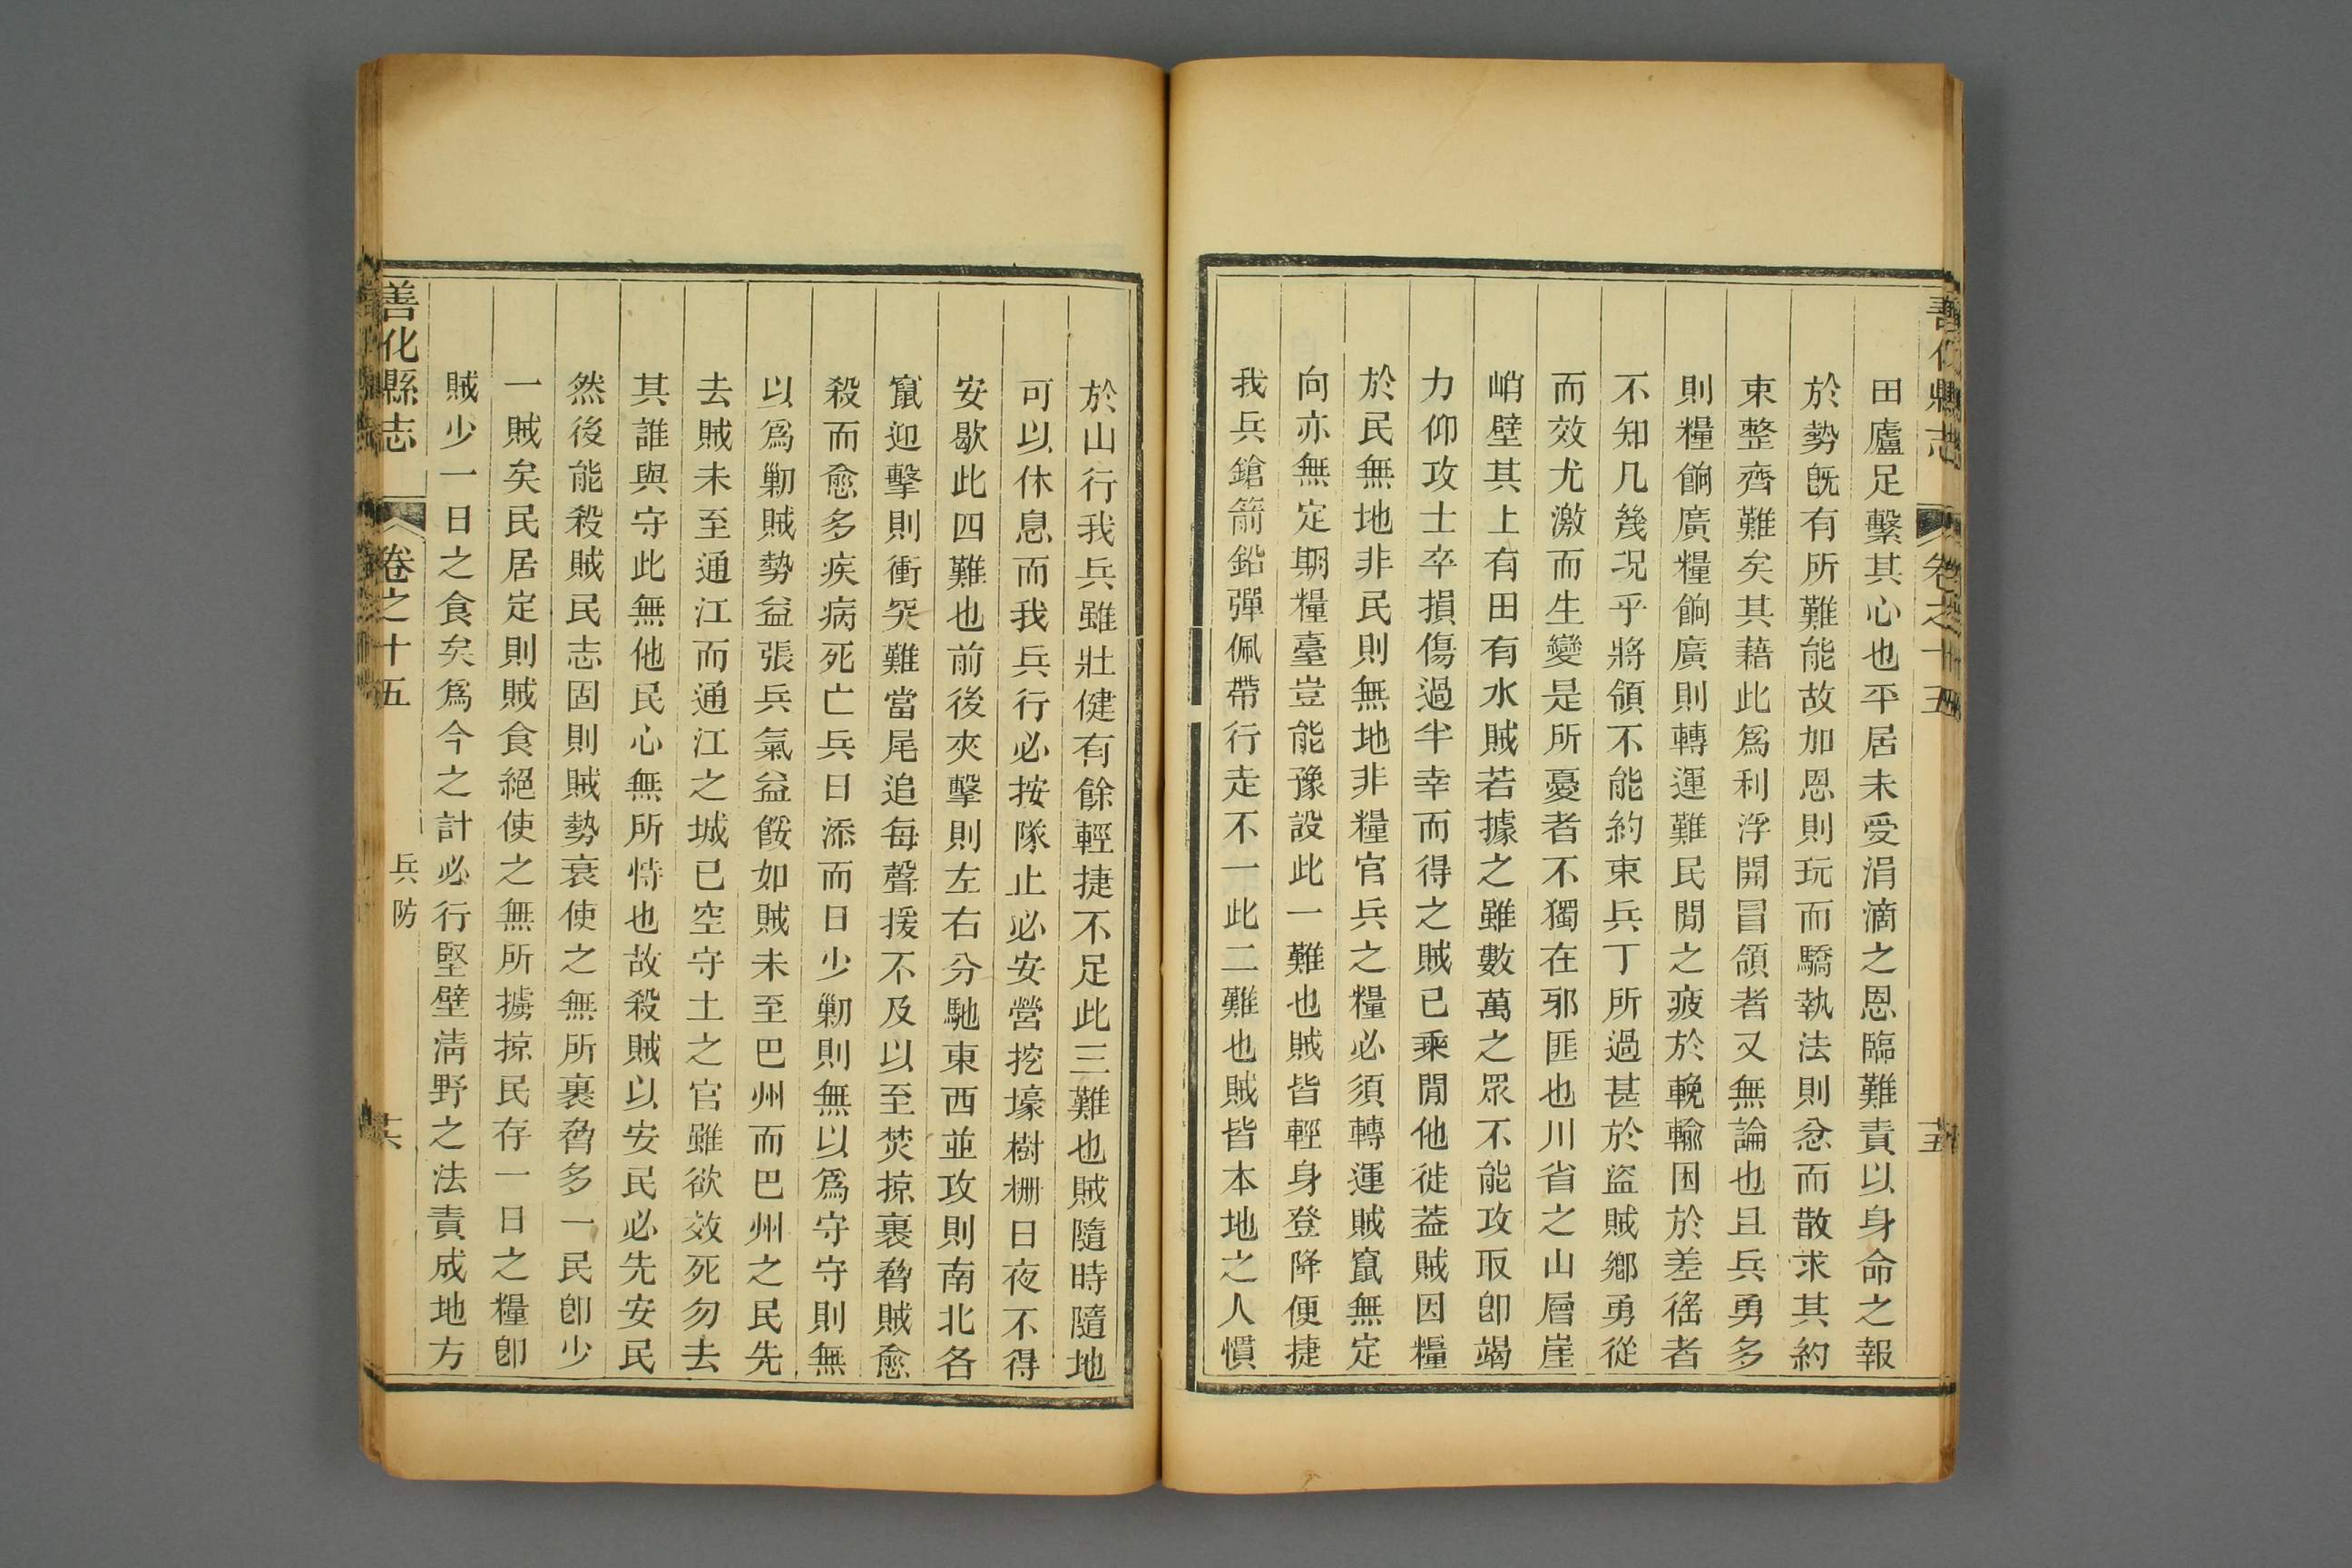 善化縣志 卷之十五
田廬足繫其心也平居未受涓滴之恩臨難責以身命之報
於勢旣有所難能故加恩則玩而驕執法則忿而散求其約
束整齊難矣其藉此爲利浮開冒領者又無論也且兵勇多
則糧餉廣糧餉廣則轉運難民閒之疲於輓輸困於差徭者
不知几幾况乎將領不能約束兵丁所過甚於盜賊鄉勇從
而效尤激而生變是所憂者不獨在邪匪也川省之山層崖
峭壁其上有田有水賊若據之雖數萬之眾不能攻取卽竭
力仰攻士卒損傷過半幸而得之賊已乘閒他徙葢賊因糧
於民無地非民則無地非糧官兵之糧必須轉運賊竄無定
向亦無定期糧臺豈能豫設此一難也賊皆輕身登降便捷
我兵鎗箭鉛彈佩帶行走不一此二難也賊皆本地之人慣
於山行我兵雖壯健有餘輕捷不足此三難也賊隨時隨地
可以休息而我兵行必按隊止必安營挖壕樹柵日夜不得
安歇此四難也前後夾擊則左右分馳東西並攻則南北各
竄迎擊則衝突難當尾追每聲援不及以至焚掠裹脅賊愈
殺而愈多疾病死亡兵日添而日少勦則無以爲守守則無
以爲勦賊勢益張兵氣益餒如賊未至巴州而巴州之民先
去賊未至通江而通江之城已空守土之官雖欲效死勿去
其誰與守此無他民心無所恃也故殺賊以安民必先安民
然後能殺賊民志固則賊勢衰使之無所裹脅多一民卽少
一賊矣民居定則賊食絕使之無所擄掠民存一日之糧卽
賊少一日之食矣爲今之計必行堅壁淸野之法責成地方
善化縣志 卷之十五 兵防